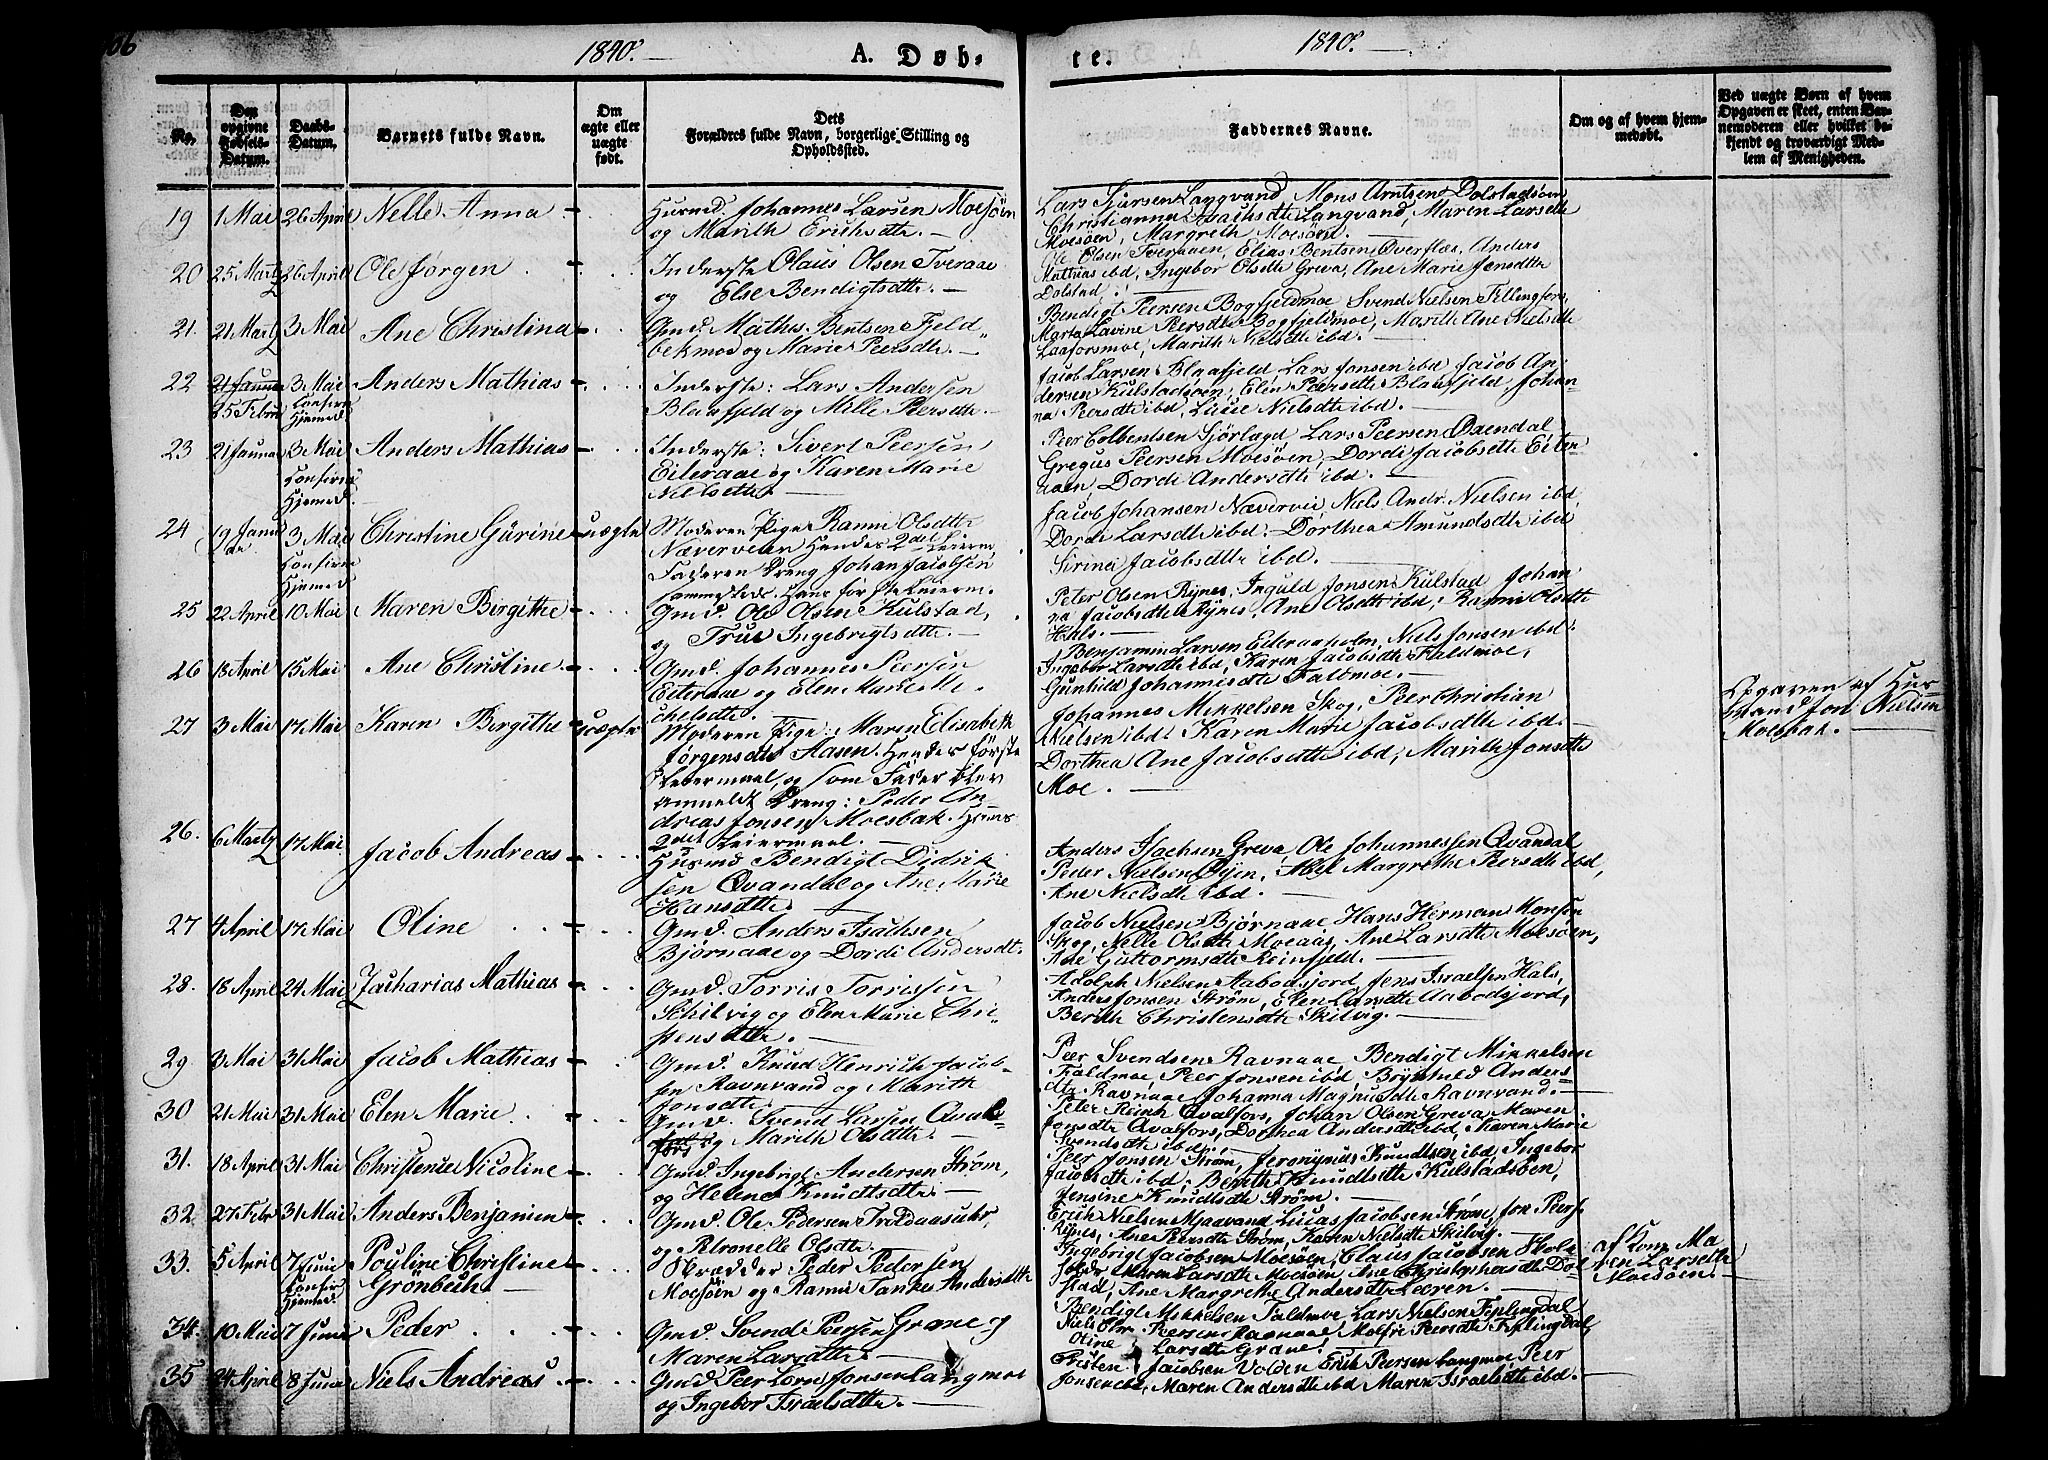 1840.
A. Døb-
te.
1840.
No.
Den opgivne Fødsels-Datum.
Daabs-Datum.
Barnets fulde Navn.
Om ægte eller uægte født.
Dets
Forældres fulde Navn, borgerlige Stilling og
Opholdssted.
Faddernes Navne.
Om og af hvem hjem-
medøbt.
Ved uægte Børn af hvem
Opgaven er skeet, enten Bar-
nemoderen eller hvilket be-
kjendt og troværdigt Med-
lem af Menigheden.
19 1 Mai 26 April Nelle Anna
Huusmd. Johannes Larsen Moesöen
og Marith Erichsdtr.
Lars Sjursen Langvand, Mons Arntzen Dolstadsöen
Christianna Isachsdtr Langvand, Maren Larsdtr
Moesöen, Margreth Moesöen.
20 25 Martz 26 April Ole Jørgen
Inderste Olaus Olsen Tveraae
og Else Bendigtsdtr.
Ole Olsen Tveraaen, Elias Bentsen Øverflæs, Anders
Mathias ibd, Ingebor Olsdtr Greva, Ane Marie Jensdtr
Dolstad.
21. 21 Martz 3 Mai Ane Christina
Gmd Mathis Bentsen Fjeld-
bekmoe og Marie Peersdtr.
Bendigt Peersen Bogfjeldmoe Svend Nielsen Fellingfors,
Marta Lavine Peersdtr Bogfjeldmoe, Marith Ane Nielsdtr
Laaforsmoe, Marith Nielsdtr ibd.
22 21 Januar 25 Febru 3 Mai Confirm Hjemed. Anders Mathias
Inderste: Lars Andersen
Blaafjeld og Mille Peersdtr.
Jacob Larsen Blaafjeld Lars Jonsen ibd Jacob An-
dersen Kulstadsöen, Elen Peersdtr Blaafjeld, Johan-
na Peersdtr ibd, Lucie Nielsdtr ibd.
23 21 Januar 3 Mai Confirm Hjemed. Anders Mathias
Inderste: Sivert Peersen
Eiteraae og Karen Marie
Nielsdtr.
Peer Colbentsen Sjörlægd Lars Peersen Oxendal
Gregus Peersen Moesöen, Dordi Jacobsdtr Eiter-
aaen, Dordi Andersdtr ibd.
24 19 Janu 3 Mai Confirm Hjemed Christine Gurine uægte
Moderen Pige Rami Olsdtr
Næverveien Hendes 2det Leierm,
Faderen Dreng Johan Jacobsen
sammesteds. Hans før ste Leierm.
Jacob Johansen Nævervei, Niels Andr. Nielsen ibd
Dordi Larsdtr ibd. Dorthea Amundsdtr ibd
Sirina Jacobsdtr ibd.
25 22 April 10 Mai Maren Birgithe
Gmd. Ole Olsen Kulstad,
og True Ingebrigtsdtr.
Peter Olsen Rynes, Inguld Jonsen Kulstad Johan
na Jacobsdtr Rynes, Ane Olsdtr ibd, Rami Olsdtr
Hals.
26 18 April 15 Mai Ane Christine
Gmd. Johannes Peersen
Eiteraae og Elen Marie Mi-
chelsdtr.
Benjamin Larsen Eiteraaholm, Niels Jonsen ibd.
Ingebor Larsdtr ibd, Karen Jacobsdtr Faldmoe,
Gunhild Johannisdtr Faldmoe.
27 3 Mai 17 Mai Karen Birgithe uægte
Moderen Pige: Maren Elisabeth
Jørgensdtr Aasen. Hendes første
Leiermaal, og som Fader blev
anmeldt Dreng: Peder An-
dreas Jonsen Moesbak. Hans
2det Leiermaal.
Johannes Mikkelsen Skog, Peer Christian
Nielsen ibd. Karen Marie Jacobsdtr ibd.
Dorthea Ane Jacobsdtr ibd, Marith Jonsdtr
Moe.
Opgaven af Huus-
mand Jon Nielsen
Moesbak.
26. 6 Martz 17 Mai Jacob Andreas
Husmd Bendigt Didrik
sen Qvandal og Ane Marie
Hansdtr.
Anders Isachsen Greva, Ole Johannessen Qvandal
Peder Nielsen Öyen, Abel Margrethe Peersdtr ibd,
Ane Nielsdtr ibd.
27 4 April 17 Mai Oline
Gmd. Anders Isachsen
Bjørnaae og Dordi Andersdtr.
Jacob Nielsen Bjørnaae Hans Herman Monsen
Skog, Nelle Olsdtr Moeaas, Ane Larsdtr Moesöen,
Ane Guttormsdtr Reinfjeld.
28. 18 April 24 Mai Zacharias Mathias
Gmd. Torris Torrissen
Schilvig og Elen Marie Chri-
stensdtr.
Adolph Nielsen Aabodsjord, Jens Israelsen Hals,
Anders Jonsen Strøm, Elen Larsdtr Aabodsjord,
Berith Christensdtr Skilvig.
29 3 Mai 31 Mai Jacob Mathias
Gmd. Knud Henrich Jacob-
sen Ravnvand og Marith
Jonsdtr.
Peer Svendsen Ravnaae, Bendigt Mikkelsen
Faldmoe, Peer Jonsen ibd, Brynhild Anders-
dtr Ravnaae Johanna Magnusdtr Ravnvand.
30 21 Mai 31 Mai Elen Marie
Gmd. Svend Larsen Qval-
fors og Marith Olsdtr.
Peter Reinh Qvalfors, Johan Olsen Greva, Maren
Jonsdtr Qvalfors, Dorthea Andersdtr ibd, Karen Marie
Svendsdtr ibd.
31. 18 April 31 Mai Christense Nicoline
Gmd Ingebrigt Andersen Strøm,
og Helene Knudtsdtr.
Peer Jonsen Strøm, Jeronymus Knudtsen ibd, Ingebor
Jacobsdtr ibd, Berith Knudtsdtr Kulstadsöen,
Jensine Knudtsdtr Strøm.
32. 27 Febr 31 Mai Anders Benjamien
Gmd. Ole Pedersen
og Petronelle Olsdtr.
Erich Nielsen Mjaavand Lucas Jacobsen Strøm, Jon Peers
Rynes, Ane Peersdtr Strøm, Karen Nielsdtr Skilvig.
33. 5 April 7 Juni Confir Hjemed. Pouline Christine
Grönbech.
Skrædder Peder Pedersen
Moesöen og Rami Tanke Andersdtr
Ingebrigt Jacobsen Moesöen, Claus Jacobsen
Maren Larsdtr Moesöen, Ane Christophersdtr Dol
stad, Ane Margrethe Andersdtr Leeren.
af Kone Ma
ren Larsdtr
Moesöen.
34. 10 Mai 7 Juni Peder
Gmd. Svend Peersen Grane og
Maren Larsdtr.
Bendigt Mikkelsen Faldmoe Lars Nielsen Fiplingdal
Niels Peersen Ravnaae, Peersdtr Fiplingdal,
Oline Larsdtr Grane.
35 24 April 8 Juni Niels Andreas
Gmd Peer Jonsen Langmoe
og Ingebor Israelsdtr.
Jacobsen Volden Erich Peersen Langmoe Peer
Jonsen ibd, Maren Andersdtr ibd Maren Israelsdtr ibd.